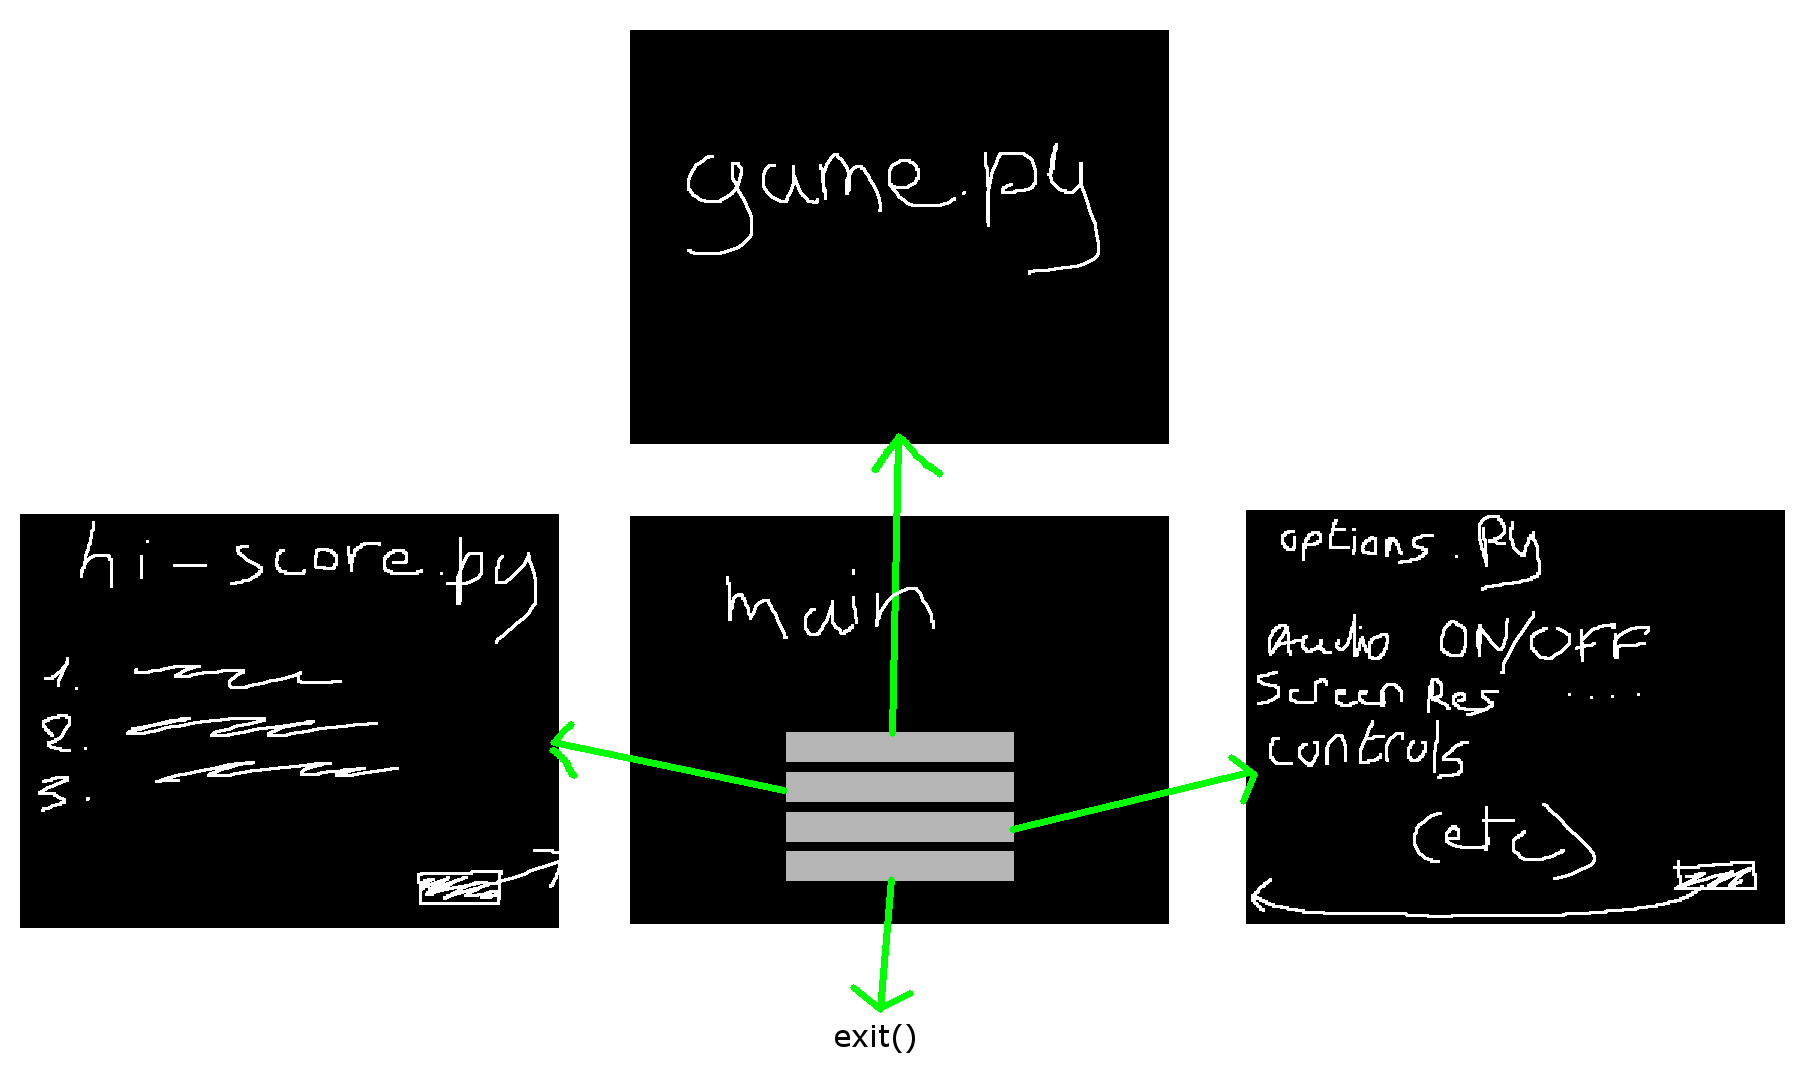 game.py
hi-score.py
1.
2.
3.
main
options.py
Audio ON/OFF
Screen Res ....
controls
(etc)
exit()